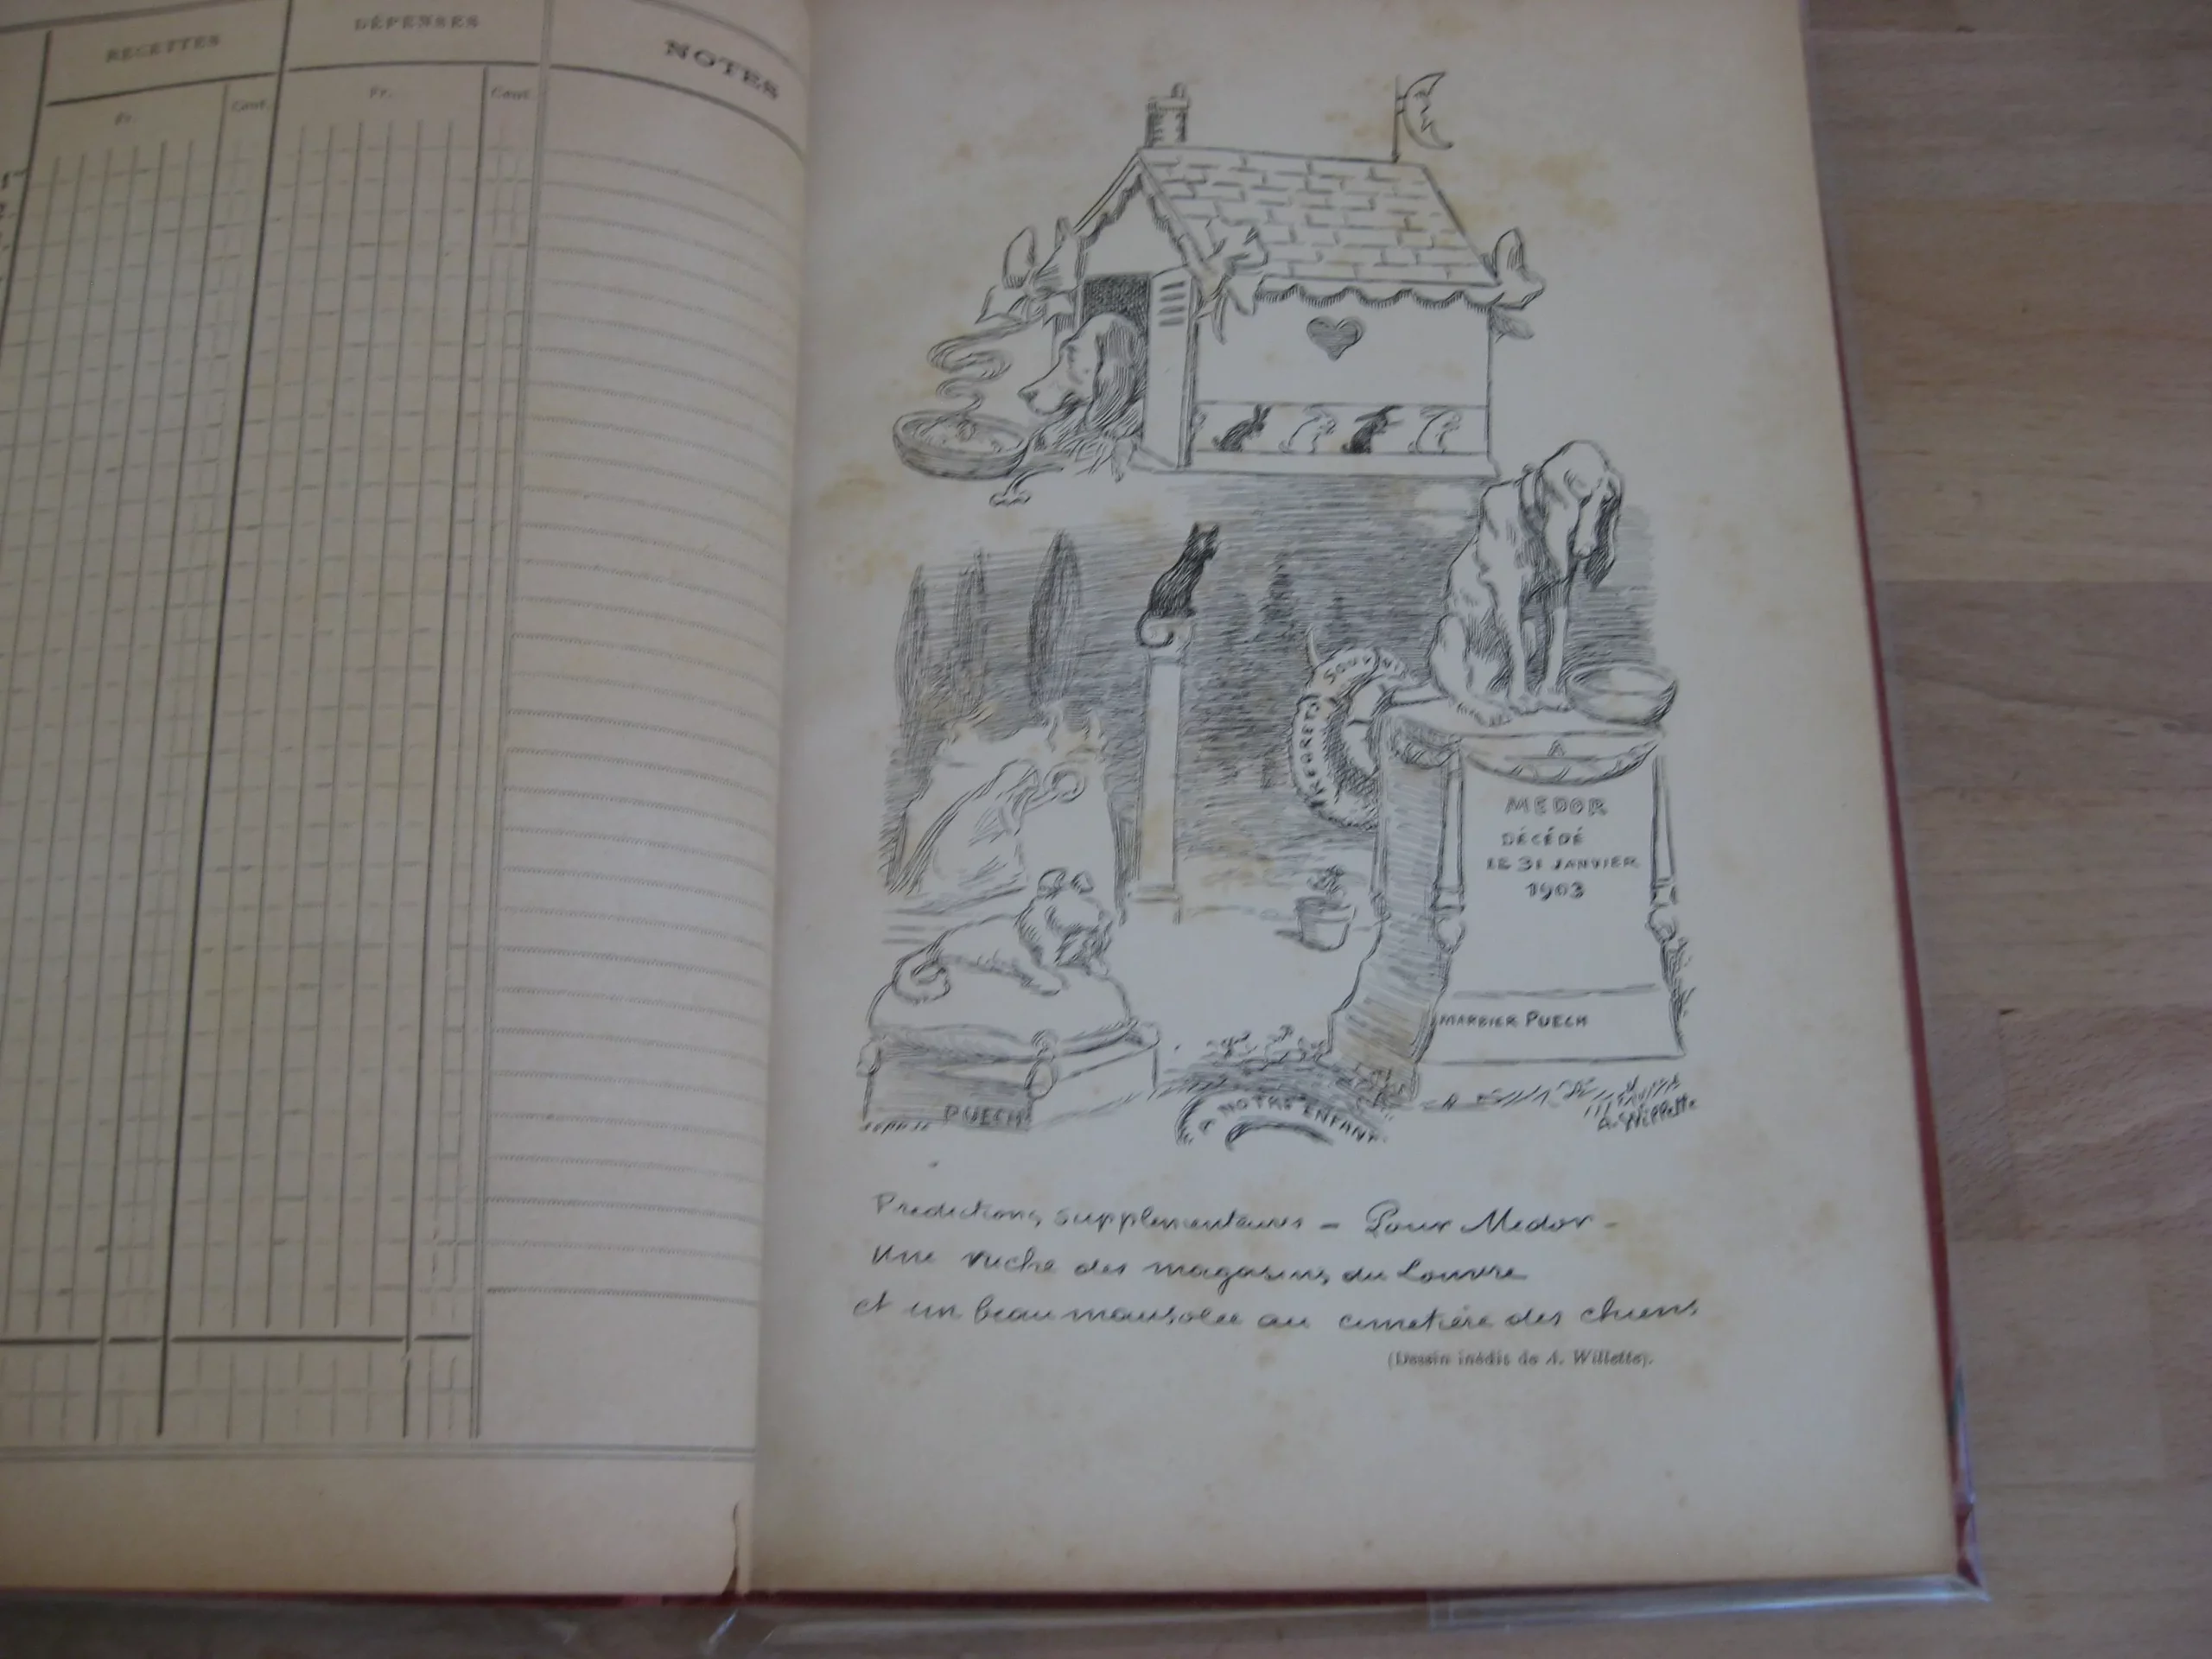 RECETTES
DÉPENSES
NOTES
Fr.
Cent.
Fr.
Cent.
SOUVENIR
REGRETS
MEDOR
DÉCÉDÉ
LE 31 JANVIER
1903
MARBIER PUECH
PUECH
A NOTRE ENFANT
A. Willette
Predictions supplementaires – Pour Medor –
Une niche des magasins du Louvre
et un beau mausolee au cimetière des chiens
(Dessin inédit de A. Willette).